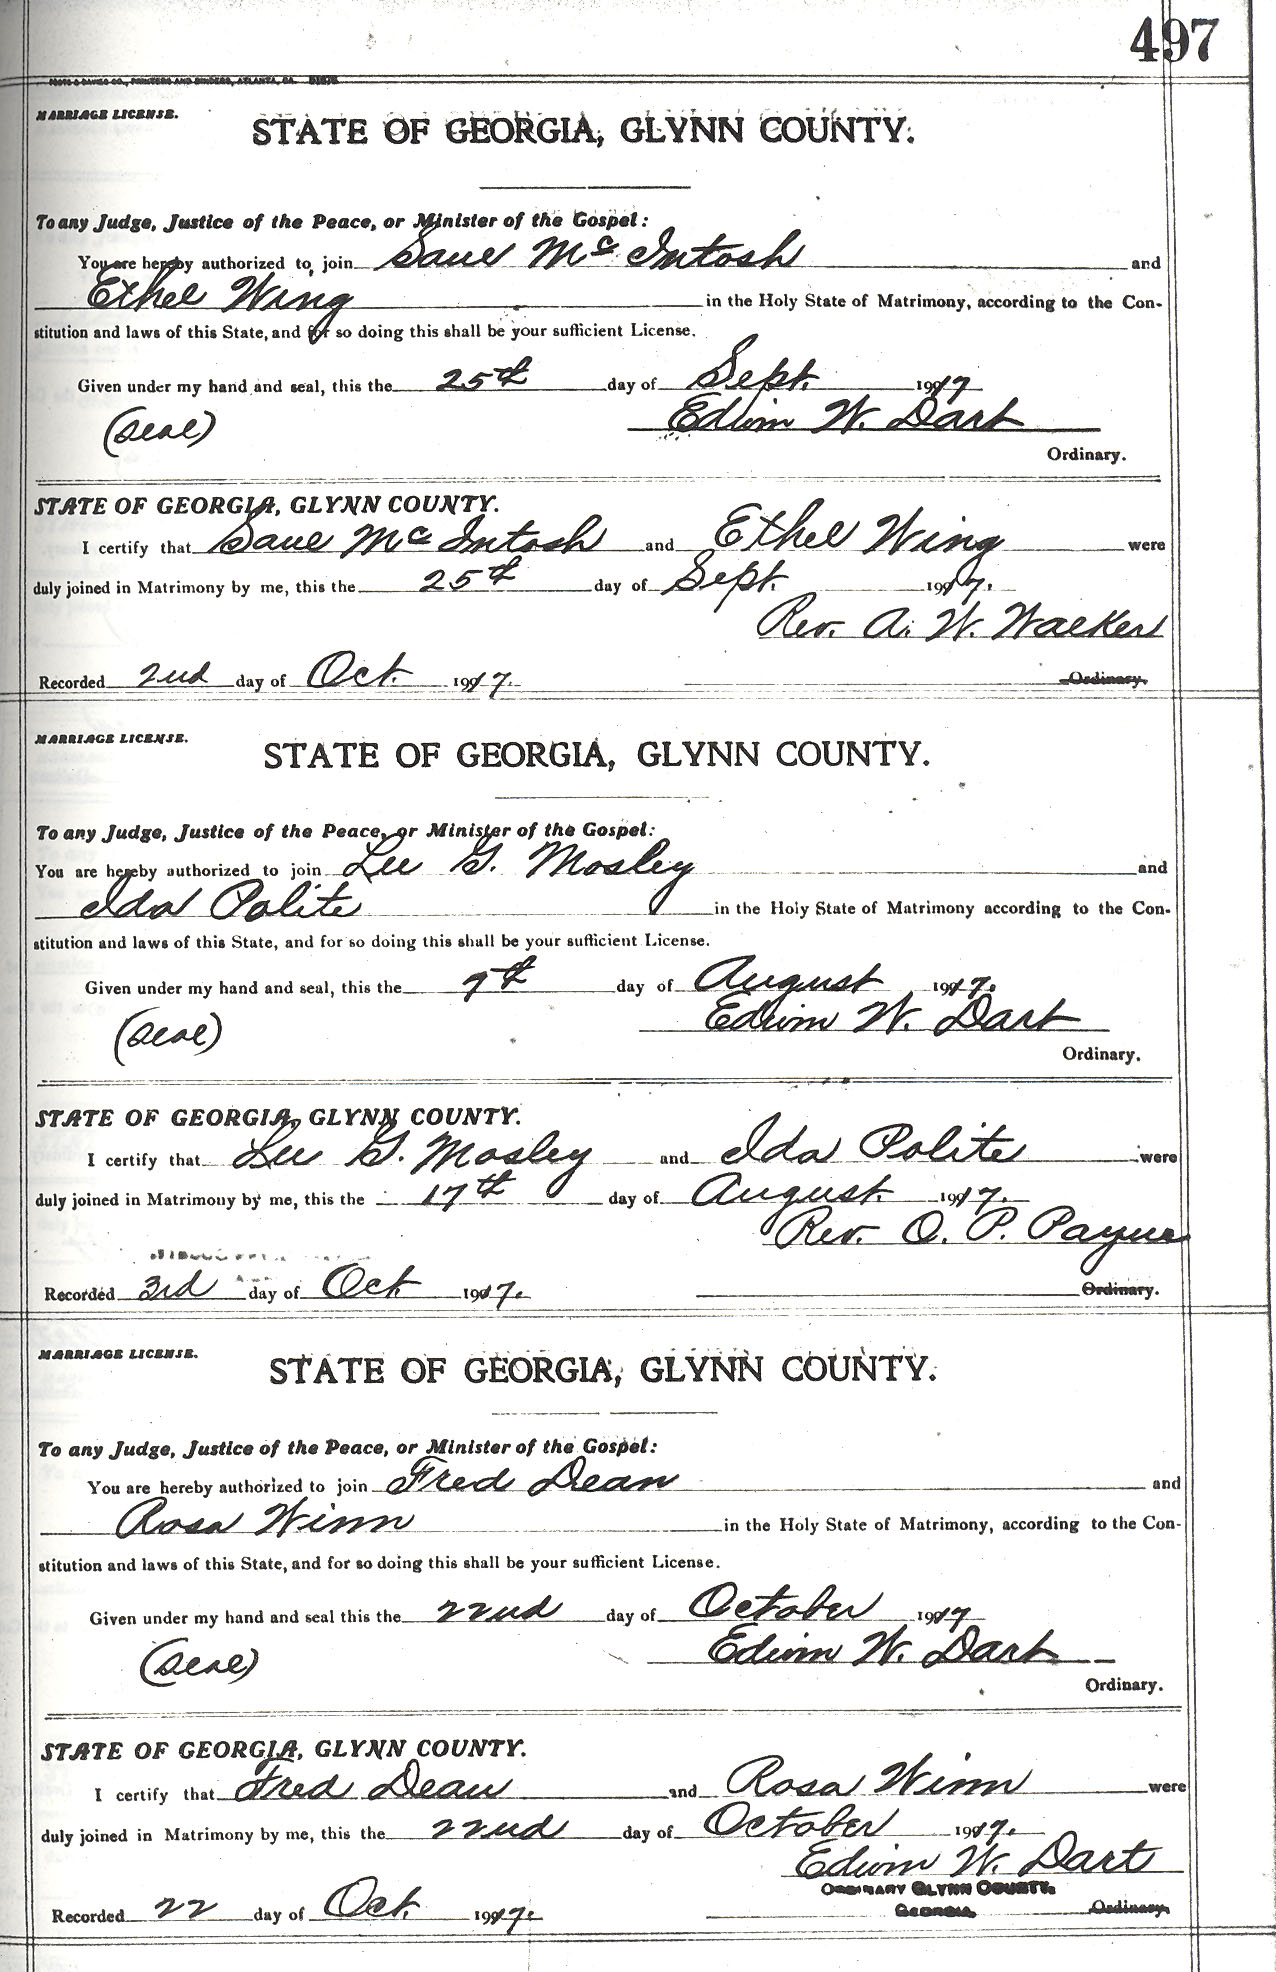 497
MARRIAGE LICENSE.
STATE OF GEORGIA, GLYNN COUNTY.
To any Judge, Justice of the Peace, or Minister of the Gospel:
You are hereby authorized to join Saul McIntosh and
Ethel Wing in the Holy State of Matrimony, according to the Con-
stitution and laws of this State, and for so doing this shall be your sufficient License.
Given under my hand and seal, this the 25th day of Sept. 1917
(Seal) Edwin W. Dart
Ordinary.
STATE OF GEORGIA, GLYNN COUNTY.
I certify that Saul McIntosh and Ethel Wing were
duly joined in Matrimony by me, this the 25th day of Sept. 1917.
Rev. A. W. Walker
Recorded 2nd day of Oct. 1917. Ordinary.
MARRIAGE LICENSE.
STATE OF GEORGIA, GLYNN COUNTY.
To any Judge, Justice of the Peace, or Minister of the Gospel:
You are hereby authorized to join Lee G. Mosley and
Ida Polite in the Holy State of Matrimony according to the Con-
stitution and laws of this State, and for so doing this shall be your sufficient License.
Given under my hand and seal, this the 7th day of August 1917.
(Seal) Edwin W. Dart
Ordinary.
STATE OF GEORGIA, GLYNN COUNTY.
I certify that Lee G. Mosley and Ida Polite were
duly joined in Matrimony by me, this the 17th day of August. 1917.
Rev. O. P. Payne
Recorded 3rd day of Oct 1917. Ordinary.
MARRIAGE LICENSE.
STATE OF GEORGIA, GLYNN COUNTY.
To any Judge, Justice of the Peace, or Minister of the Gospel:
You are hereby authorized to join Fred Dean and
Rosa Winn in the Holy State of Matrimony, according to the Con-
stitution and laws of this State, and for so doing this shall be your sufficient License.
Given under my hand and seal this the 22nd day of October 1917
(Seal) Edwin W. Dart
Ordinary.
STATE OF GEORGIA, GLYNN COUNTY.
I certify that Fred Dean and Rosa Winn were
duly joined in Matrimony by me, this the 22nd day of October 1917.
Edwin W. Dart
ORDINARY GLYNN COUNTY.
GEORGIA.
Recorded 22 day of Oct. 1917. Ordinary.